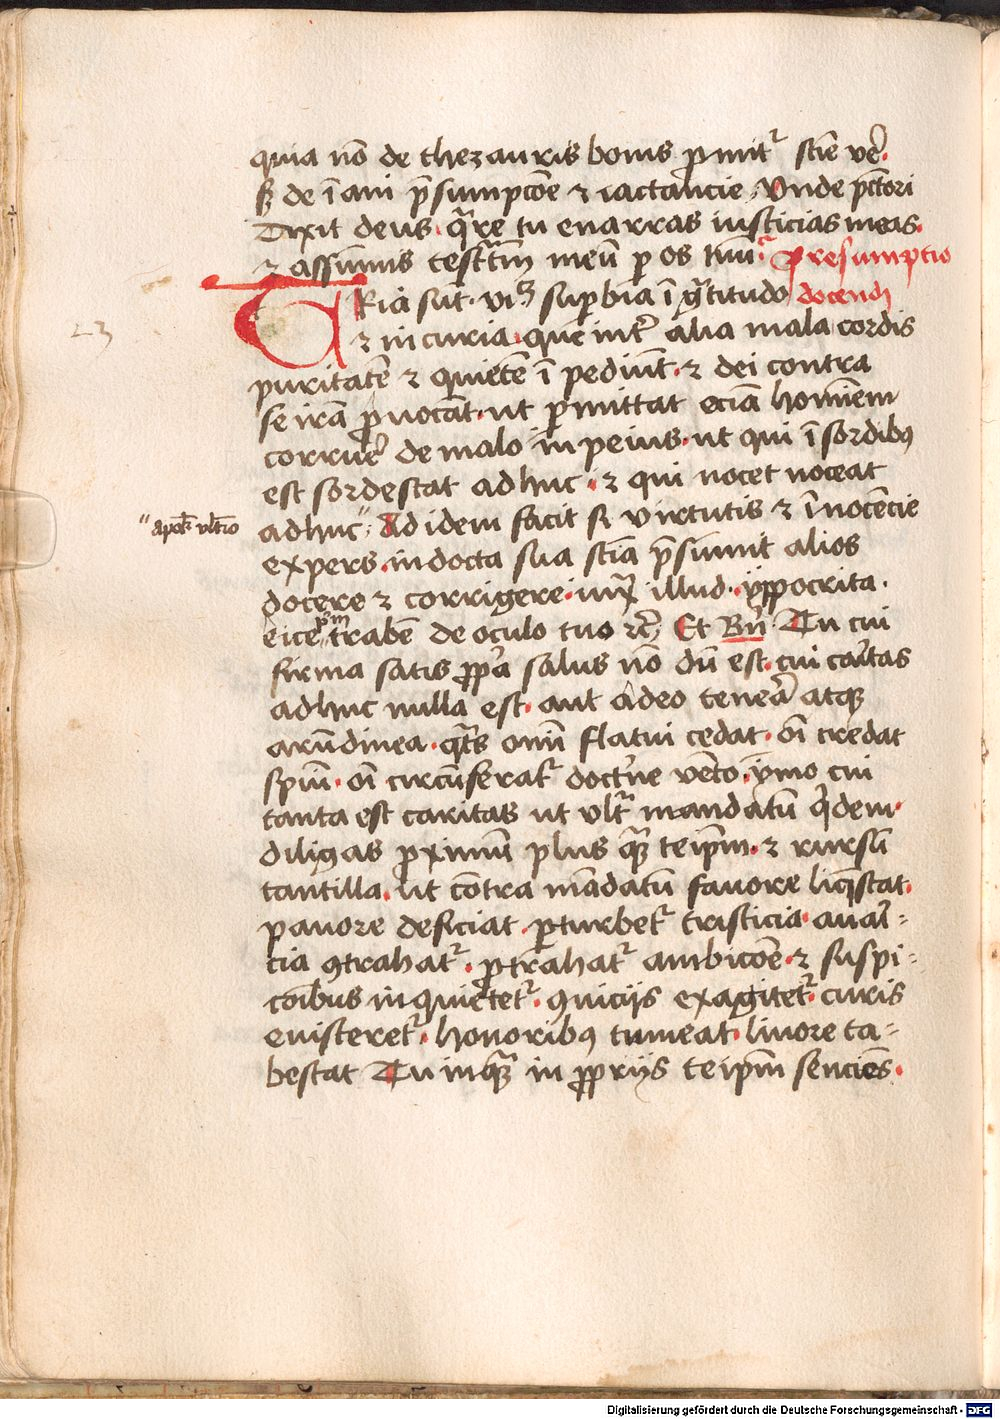 quia nō de thezauris bonis ꝓmitʳ scīe vēᵉ.
sꝫ de ī ani p̄sumpcōe ⁊ iactancie, Vnde pctōri
Dixit deus. q̄re tu enarras iusticias meas.
⁊ assumis testm̄ meū ꝑ os tuū. Presumptio
docendi
TRia sūt. vicꝫ suꝑbia īgͣtitudo
⁊ incuria. que inter̄ alia mala cordis
23
puritatē ⁊ quietē ī pediūt. ⁊ dei contra
se irā ꝓuocāt. ut ꝑmittat eciā hominem
corruer̄ de malo in peius. ut qui ī sordibꝰ
est sordescat adhuc. ⁊ qui nocet noceat
"apok̄ vltīo
adhuc", Ad idem facit sꝫ virtutis ⁊ īnocēcie
expers. indocta sua scīa p̄sumit alios
docere ⁊ corrigere. iuxͣ illud. yppocrita.
eice pͫm trabē de oculo tuo ⁊cͣ, Et Bn̄. Tu cui
firma satis ꝓpͥa salus nō dū est. cui caͥtas
adhuc nulla est. aut adeo teneͬa atqꝫ
arūdinea. qͣts omi flatui cedat. oī credat
spiūi. oī circūferatʳ doctͥne vēto. ymo cui
tanta est caritas ut vltͣ mandatū qͥdem.
diligas ꝓximū plus qͣꝫ teipm̄. ⁊ rursū
tantilla. ut cōtra mādatū fauore liqͥscat.
pauore deficiat. ꝑturbetʳ tristicia. auaͥ-
cia ꝯtrahatʳ. ꝓtrahatʳ ambicōe. ⁊ suspi-
cōibus inquietetʳ. ꝯuicijs exagitetʳ. curis
euisceretʳ. honoribꝰ tumeat. liuore ta-
bescat Tu inqͣꝫ in ꝓprijs teipm̄ senciēs.
Digitalisierung gefördert durch die Deutsche Forschungsgemeinschaft - DFG